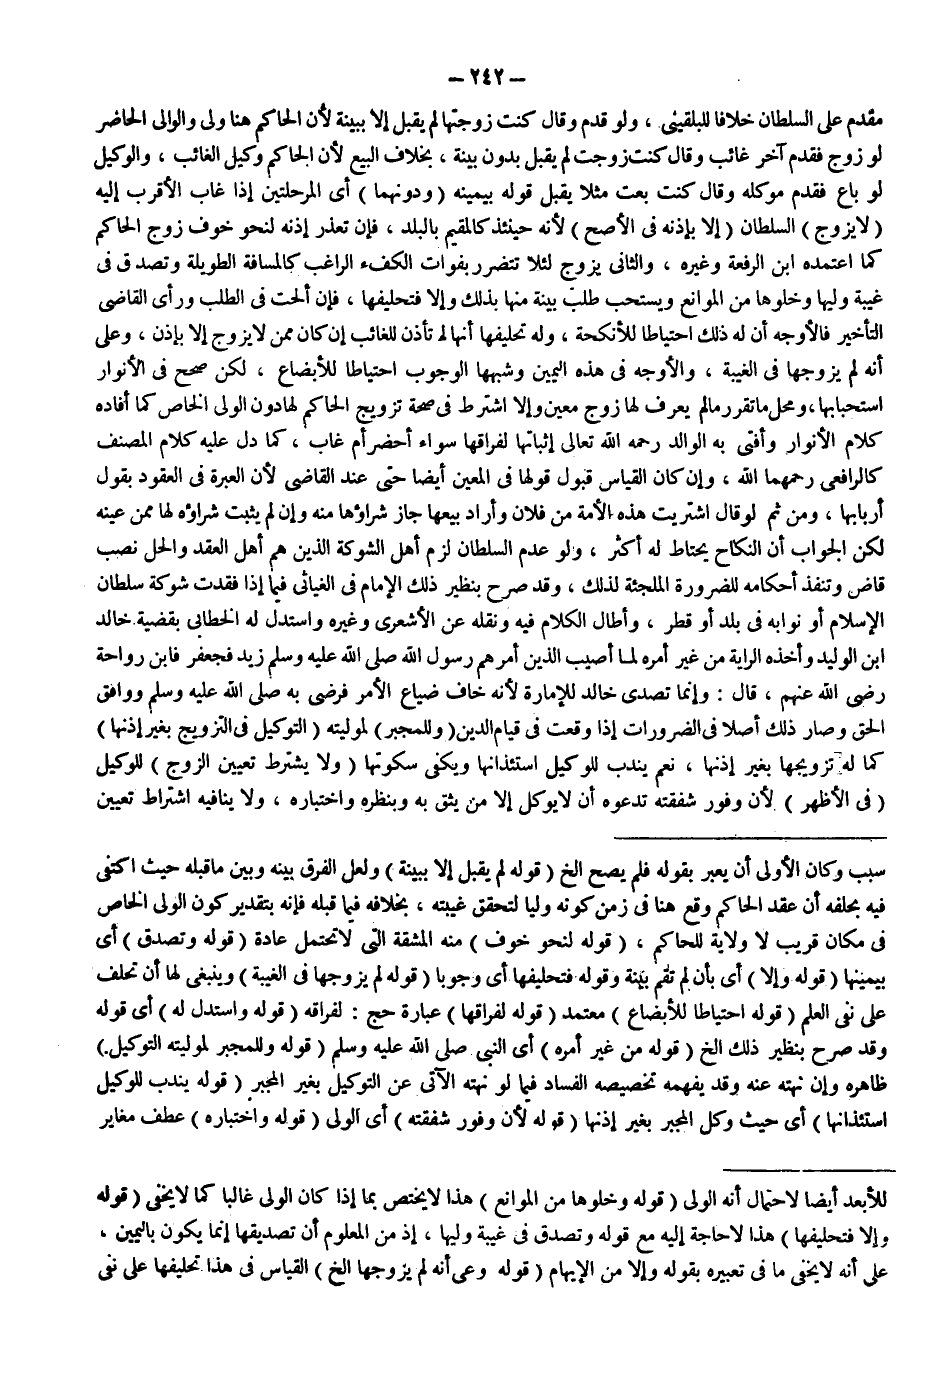 – ٢٤٢ –
مقدم على السلطان خلافا للبلقينى ، ولو قدم وقال كنت زوجتها لم يقبل إلا ببينة لأن الحاكم هنا ولى والوالى الحاضر
لو زوج فقدم آخر غائب وقال كنت زوجت لم يقبل بدون بينة ، بخلاف البيع لأن الحاكم وكيل الغائب ، والوكيل
لو باع فقدم موكله وقال كنت بعت مثلا يقبل قوله بيمينه ( ودونهما ) أى المرحلتين إذا غاب الأقرب إليه
( لايزوج ) السلطان ( إلا بإذنه فى الأصح ) لأنه حينئذ كالمقيم بالبلد ، فإن تعذر إذنه لنحو خوف زوج الحاكم
كما اعتمده ابن الرفعة وغيره ، والثانى يزوج لئلا تتضرر بفوات الكفء الراغب كالمسافة الطويلة وتصدق فى
غيبة وليها وخلوها من الموانع ويستحب طلب بينة منها بذلك وإلا فتحليفها ، فإن ألحت فى الطلب ورأى القاضى
التأخير فالأوجه أن له ذلك احتياطا للأنكحة ، وله تحليفها أنها لم تأذن للغائب إن كان ممن لايزوج إلا بإذن ، وعلى
أنه لم يزوجها فى الغيبة ، والأوجه فى هذه اليمين وشبهها الوجوب احتياطا للأبضاع ، لكن صحح فى الأنوار
استحبابها، ومحل ماتقرر مالم يعرف لها زوج معين وإلا اشترط فى صحة تزويج الحاكم لها دون الولى الخاص كما أفاده
كلام الأنوار وأفتى به الوالد رحمه الله تعالى إثباتها لفراقها سواء أحضر أم غاب ، كما دل عليه كلام المصنف
كالرافعى رحمهما الله ، وإن كان القياس قبول قولها فى المعين أيضا حتى عند القاضى لأن العبرة فى العقود بقول
أربابها ، ومن ثم لو قال اشتريت هذه الأمة من فلان وأراد بيعها جاز شراؤها منه وإن لم يثبت شراؤه لها ممن عينه
لكن الجواب أن النكاح يحتاط له أكثر ، ولو عدم السلطان لزم أهل الشوكة الذين هم أهل العقد والحل نصب
قاض وتنفذ أحكامه للضرورة الملجئة لذلك ، وقد صرح بنظير ذلك الإمام فى الغياثى فيما إذا فقدت شوكة سلطان
الإسلام أو نوابه فى بلد أو قطر ، وأطال الكلام فيه ونقله عن الأشعرى وغيره واستدل له الخطابى بقضية خالد
ابن الوليد وأخذه الراية من غير أمره لما أصيب الذين أمرهم رسول الله صلى الله عليه وسلم زيد فجعفر فابن رواحة
رضى الله عنهم ، قال : وإنما تصدى خالد للإمارة لأنه خاف ضياع الأمر فرضى به صلى الله عليه وسلم ووافق
الحق وصار ذلك أصلا فى الضرورات إذا وقعت فى قيام الدين ( وللمجبر ) لموليته ( التوكيل فى التزويج بغير إذنها )
كما له تزويجها بغير إذنها ، نعم يندب للوكيل استئذانها ويكفى سكوتها ( ولا يشترط تعيين الزوج ) للوكيل
( فى الأظهر ) لأن وفور شفقته تدعوه أن لايوكل إلا من يثق به وبنظره واختباره ، ولا ينافيه اشتراط تعيين
سبب وكان الأولى أن يعبر بقوله فلم يصح الخ ( قوله لم يقبل إلا ببينة ) ولعل الفرق بينه وبين ماقبله حيث اكتفى
فيه بحلفه أن عقد الحاكم وقع هنا فى زمن كونه وليا لتحقق غيبته ، بخلافه فيما قبله فإنه بتقدير كون الولى الخاص
فى مكان قريب لا ولاية للحاكم ، ( قوله لنحو خوف ) منه المشقة التى لاتحتمل عادة ( قوله وتصدق ) أى
بيمينها ( قوله وإلا ) أى بأن لم تقم بينة وقوله فتحليفها أى وجوبا ( قوله لم يزوجها فى الغيبة ) وينبغى لها أن تحلف
على نفى العلم ( قوله احتياطا للأبضاع ) معتمد ( قوله لفراقها ) عبارة حج : لفراقه ( قوله واستدل له ) أى قوله
وقد صرح بنظير ذلك الخ ( قوله من غير أمره ) أى النبى صلى الله عليه وسلم ( قوله وللمجبر لموليته التوكيل )
ظاهره وإن نهته عنه وقد يفهمه تخصيصه الفساد فيما لو نهته الآتى عن التوكيل بغير المجبر ( قوله يندب للوكيل
استئذانها ) أى حيث وكل المجبر بغير إذنها ( قوله لأن وفور شفقته ) أى الولى ( قوله واختباره ) عطف مغاير
للأبعد أيضا لاحتمال أنه الولى ( قوله وخلوها من الموانع ) هذا لايختص بما إذا كان الولى غالبا كما لايخفى ( قوله
وإلا فتحليفها ) هذا لاحاجة إليه مع قوله وتصدق فى غيبة وليها ، إذ من المعلوم أن تصديقها إنما يكون باليمين ،
على أنه لايخفى ما فى تعبيره بقوله وإلا من الإيهام ( قوله وعى أنه لم يزوجها الخ ) القياس فى هذا تحليفها على نفى